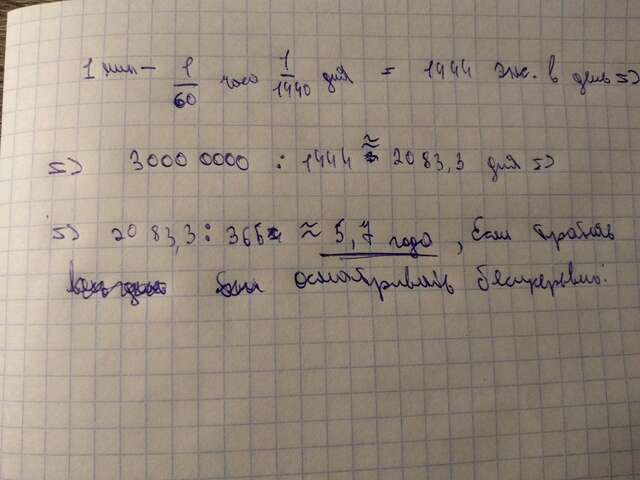 1 мин — 1/60 часа 1/1440 дня = 1444 экс. в день =>
=> 3000 0000 : 1444 ≈ 2083,3 дня =>
=> 2083,3 : 365 ≈ 5,7 года, Если
осматривать беспрерывно.